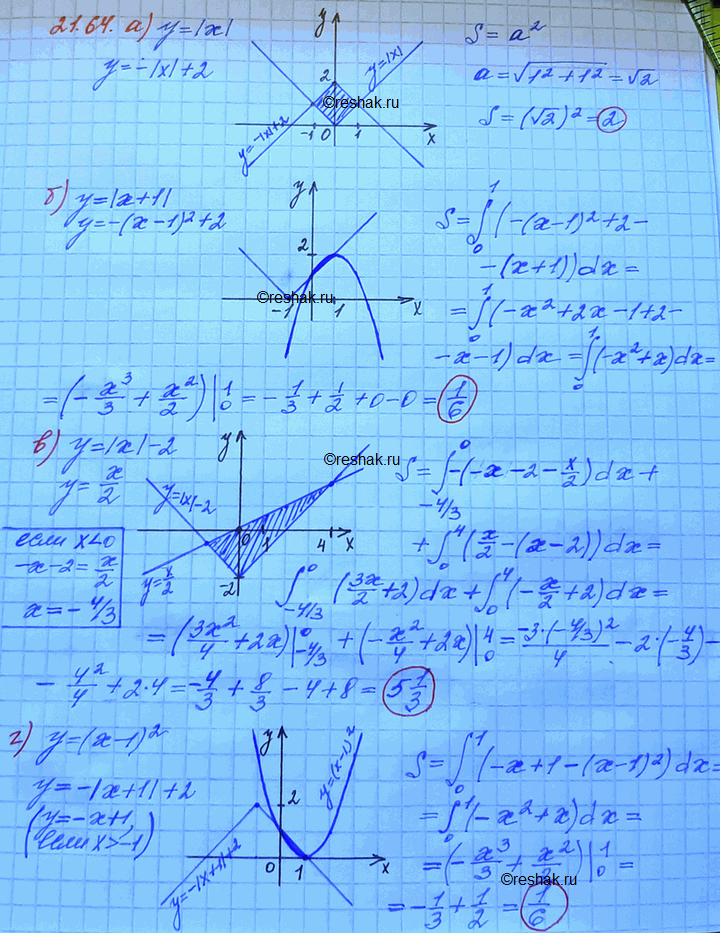 21.64. а) y=|x|
y=-|x|+2
y
2
y=|x|
y=-|x|+2
-1 0 1 x
©reshak.ru
S = a²
a=√(1²+1²)=√2
S=(√2)²=2
б) y=|x+1|
y=-(x-1)²+2
y
2
-1 1 x
©reshak.ru
S=∫₀¹(-(x-1)²+2-
-(x+1))dx=
=∫₀¹(-x²+2x-1+2-
-x-1)dx=∫₀¹(-x²+x)dx=
=(-x³/3+x²/2)|₀¹=-1/3+1/2+0-0=1/6
в) y=|x|-2
y=x/2
если x<0
-x-2=x/2
x=-4/3
y
y=|x|-2
0 1 4 x
y=x/2
-2
©reshak.ru
S=∫₋₄/₃⁰-(-x-2-x/2)dx+
+∫₀⁴(x/2-(x-2))dx=
∫₋₄/₃⁰(3x/2+2)dx+∫₀⁴(-x/2+2)dx=
=(3x²/4+2x)|₋₄/₃⁰+(-x²/4+2x)|₀⁴=-3·(-4/3)²/4-2·(-4/3)-
-4²/4+2·4=-4/3+8/3-4+8=5 1/3
г) y=(x-1)²
y=-|x+1|+2
(y=-x+1,
если x>-1)
y
y=(x-1)²
2
0 1 x
y=-|x+1|+2
S=∫₀¹(-x+1-(x-1)²)dx=
=∫₀¹(-x²+x)dx=
=(-x³/3+x²/2)|₀¹=
©reshak.ru
=-1/3+1/2=1/6